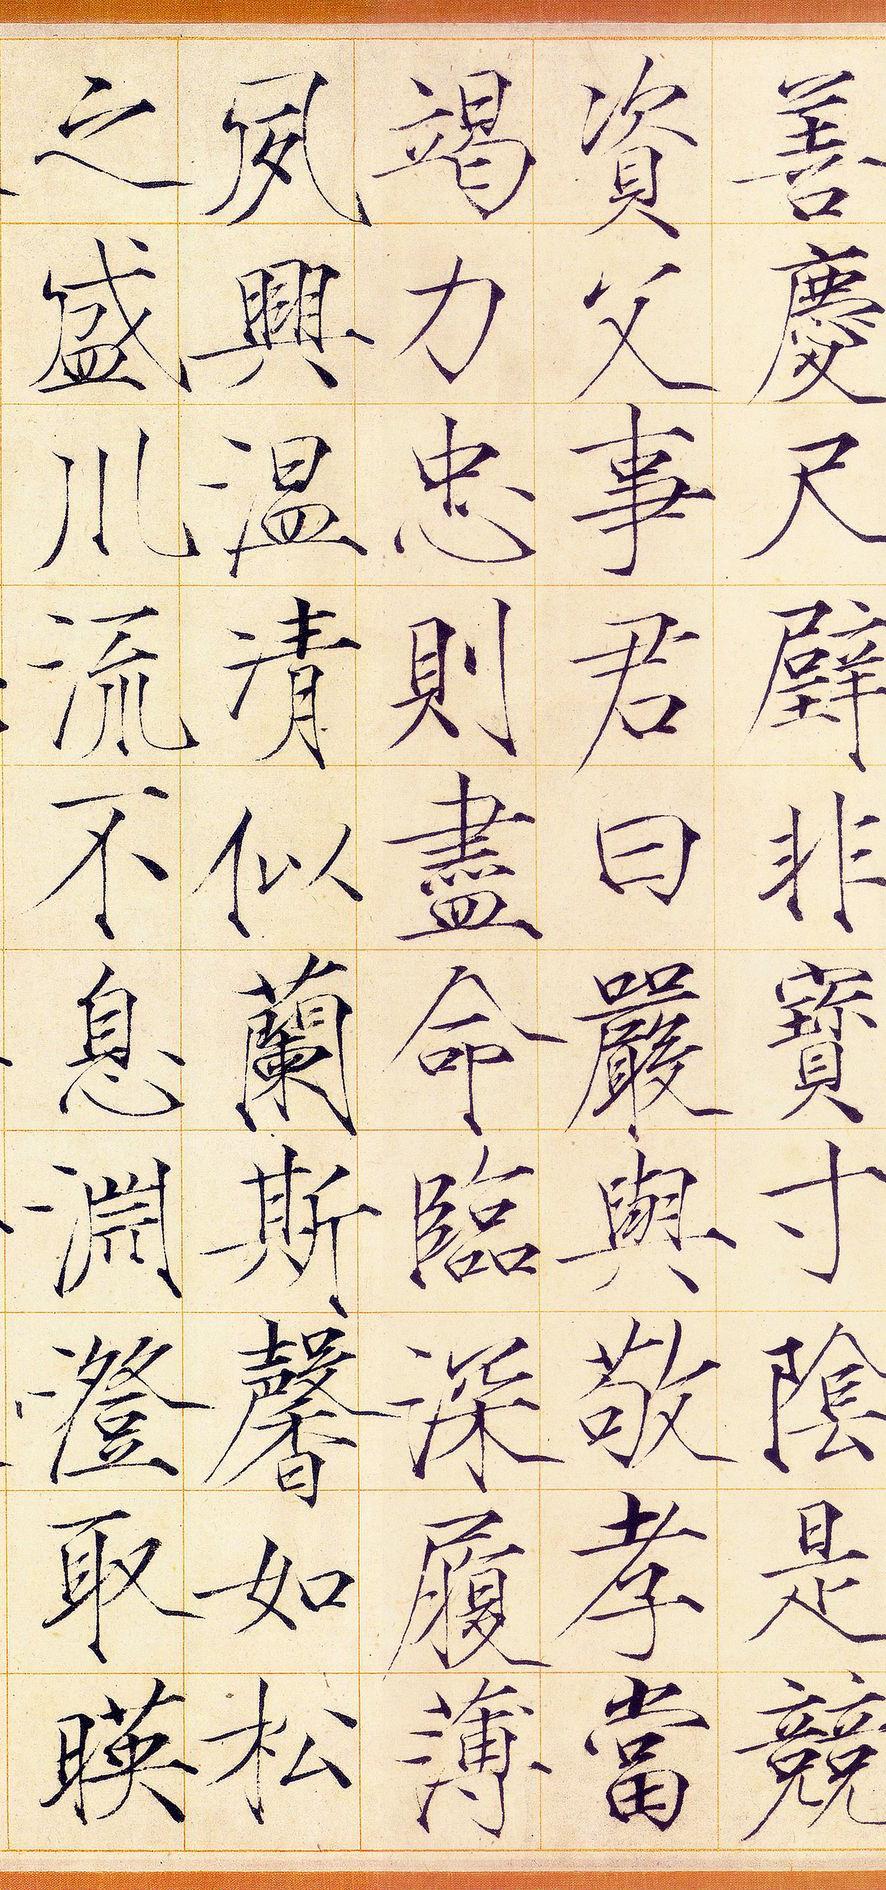 善慶尺璧非寶寸陰是競
資父事君曰嚴與敬孝當
竭力忠則盡命臨深履薄
夙興温清似蘭斯馨如松
之盛川流不息淵澄取暎